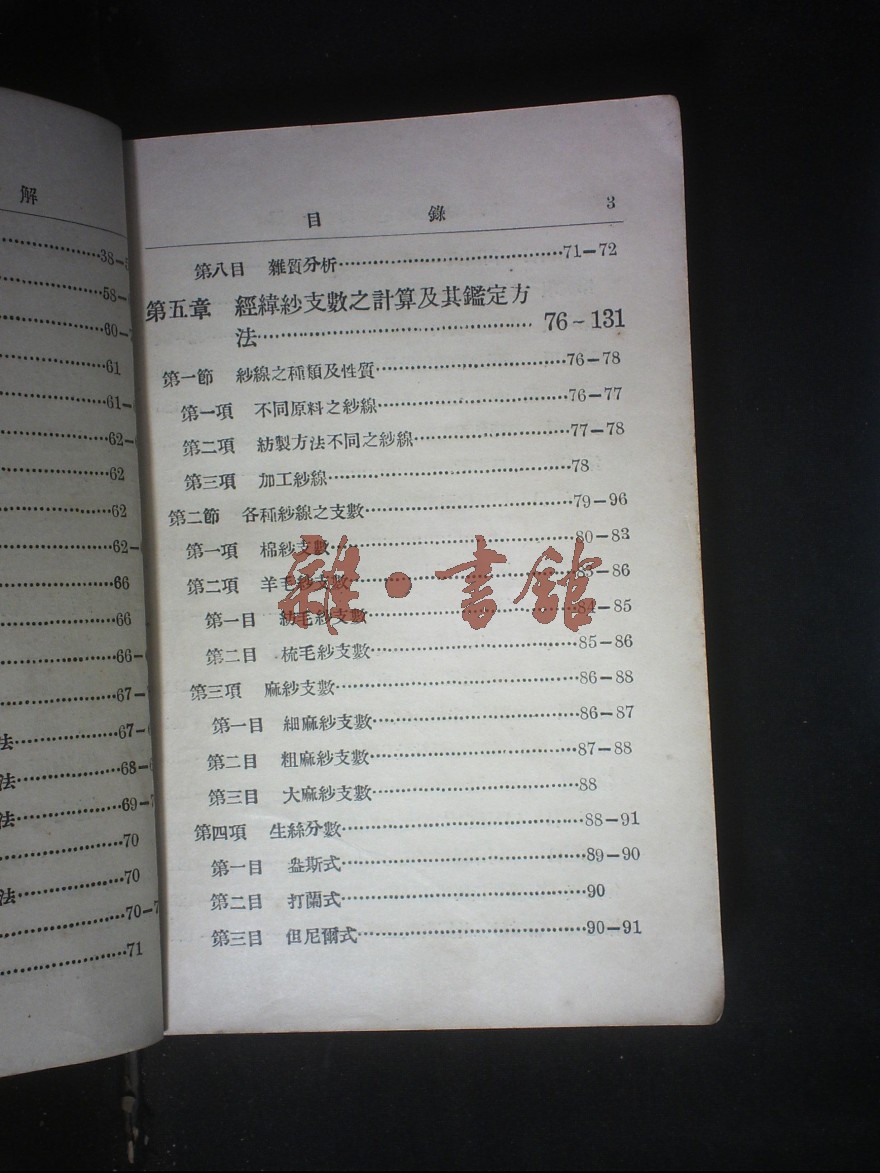 解
38-
58-
60-7
61
61-
62-
62
62
62-
66
66
66-
67-
法 67-
法 68-
法 69-7
70
法 70
70-7
71
目 錄 3
第八目 雜質分析 71-72
第五章 經緯紗支數之計算及其鑑定方
法 76~131
第一節 紗線之種類及性質 76-78
第一項 不同原料之紗線 76-77
第二項 紡製方法不同之紗線 77-78
第三項 加工紗線 78
第二節 各種紗線之支數 79-96
第一項 棉紗支數 80-83
第二項 羊毛紗支數 83-86
第一目 紡毛紗支數 84-85
第二目 梳毛紗支數 85-86
第三項 麻紗支數 86-88
第一目 細麻紗支數 86-87
第二目 粗麻紗支數 87-88
第三目 大麻紗支數 88
第四項 生絲分數 88-91
第一目 盎斯式 89-90
第二目 打蘭式 90
第三目 但尼爾式 90-91
雜·書館